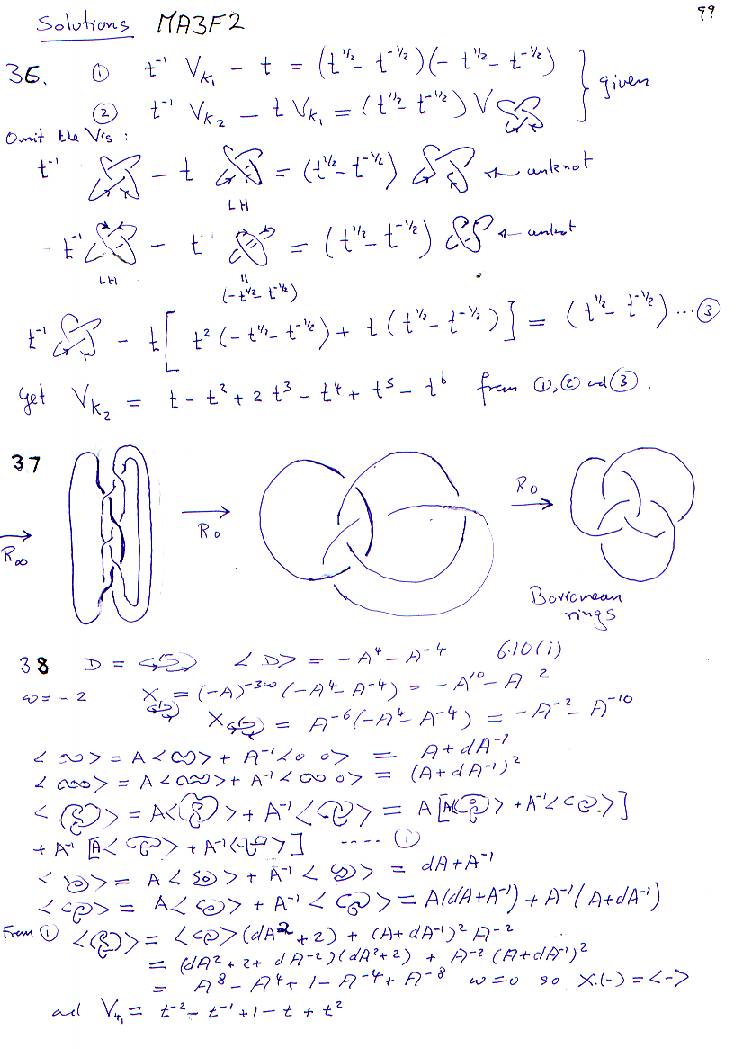 99
Solutions MA3F2
36. ① t⁻¹ V_K₁ − t = (t^½ − t^-½)(− t^½ − t^-½) } given
② t⁻¹ V_K₂ − t V_K₁ = (t^½ − t^-½) V
Omit the V's :
t⁻¹ − t = (t^½ − t^-½) ← unknot
LH
t⁻¹ − t = (t^½ − t^-½) ← unknot
LH
=
(− t^½ − t^-½)
t⁻¹ − t [ t² (− t^½ − t^-½) + t (t^½ − t^-½) ] = (t^½ − t^-½) ... ③
Get V_K₂ = t − t² + 2t³ − t⁴ + t⁵ − t⁶ from ①, ② and ③.
37
R∞ → R₀ → R₀ →
Borromean
rings
38 D = <D> = −A⁴ − A⁻⁴ 6.10(i)
ω = −2 X = (−A)^-3ω (−A⁴ − A⁻⁴) = −A¹⁰ − A²
X = A⁻⁶(−A⁴ − A⁻⁴) = −A⁻² − A⁻¹⁰
< > = A < > + A⁻¹ < > = A + dA⁻¹
< > = A < > + A⁻¹ < > = (A + dA⁻¹)²
< > = A < > + A⁻¹ < > = A [A < > + A⁻¹ < >]
+ A⁻¹ [A < > + A⁻¹ < >] .... ①
< > = A < > + A⁻¹ < > = dA + A⁻¹
< > = A < > + A⁻¹ < > = A(dA + A⁻¹) + A⁻¹(A + dA⁻¹)
From ① < > = < > (dA² + 2) + (A + dA⁻¹)² A⁻²
= (dA² + 2 + dA⁻²)(dA² + 2) + A⁻² (A + dA⁻¹)²
= A⁸ − A⁴ + 1 − A⁻⁴ + A⁻⁸ ω = 0 so X(−) = <−>
and V_4₁ = t⁻² − t⁻¹ + 1 − t + t²